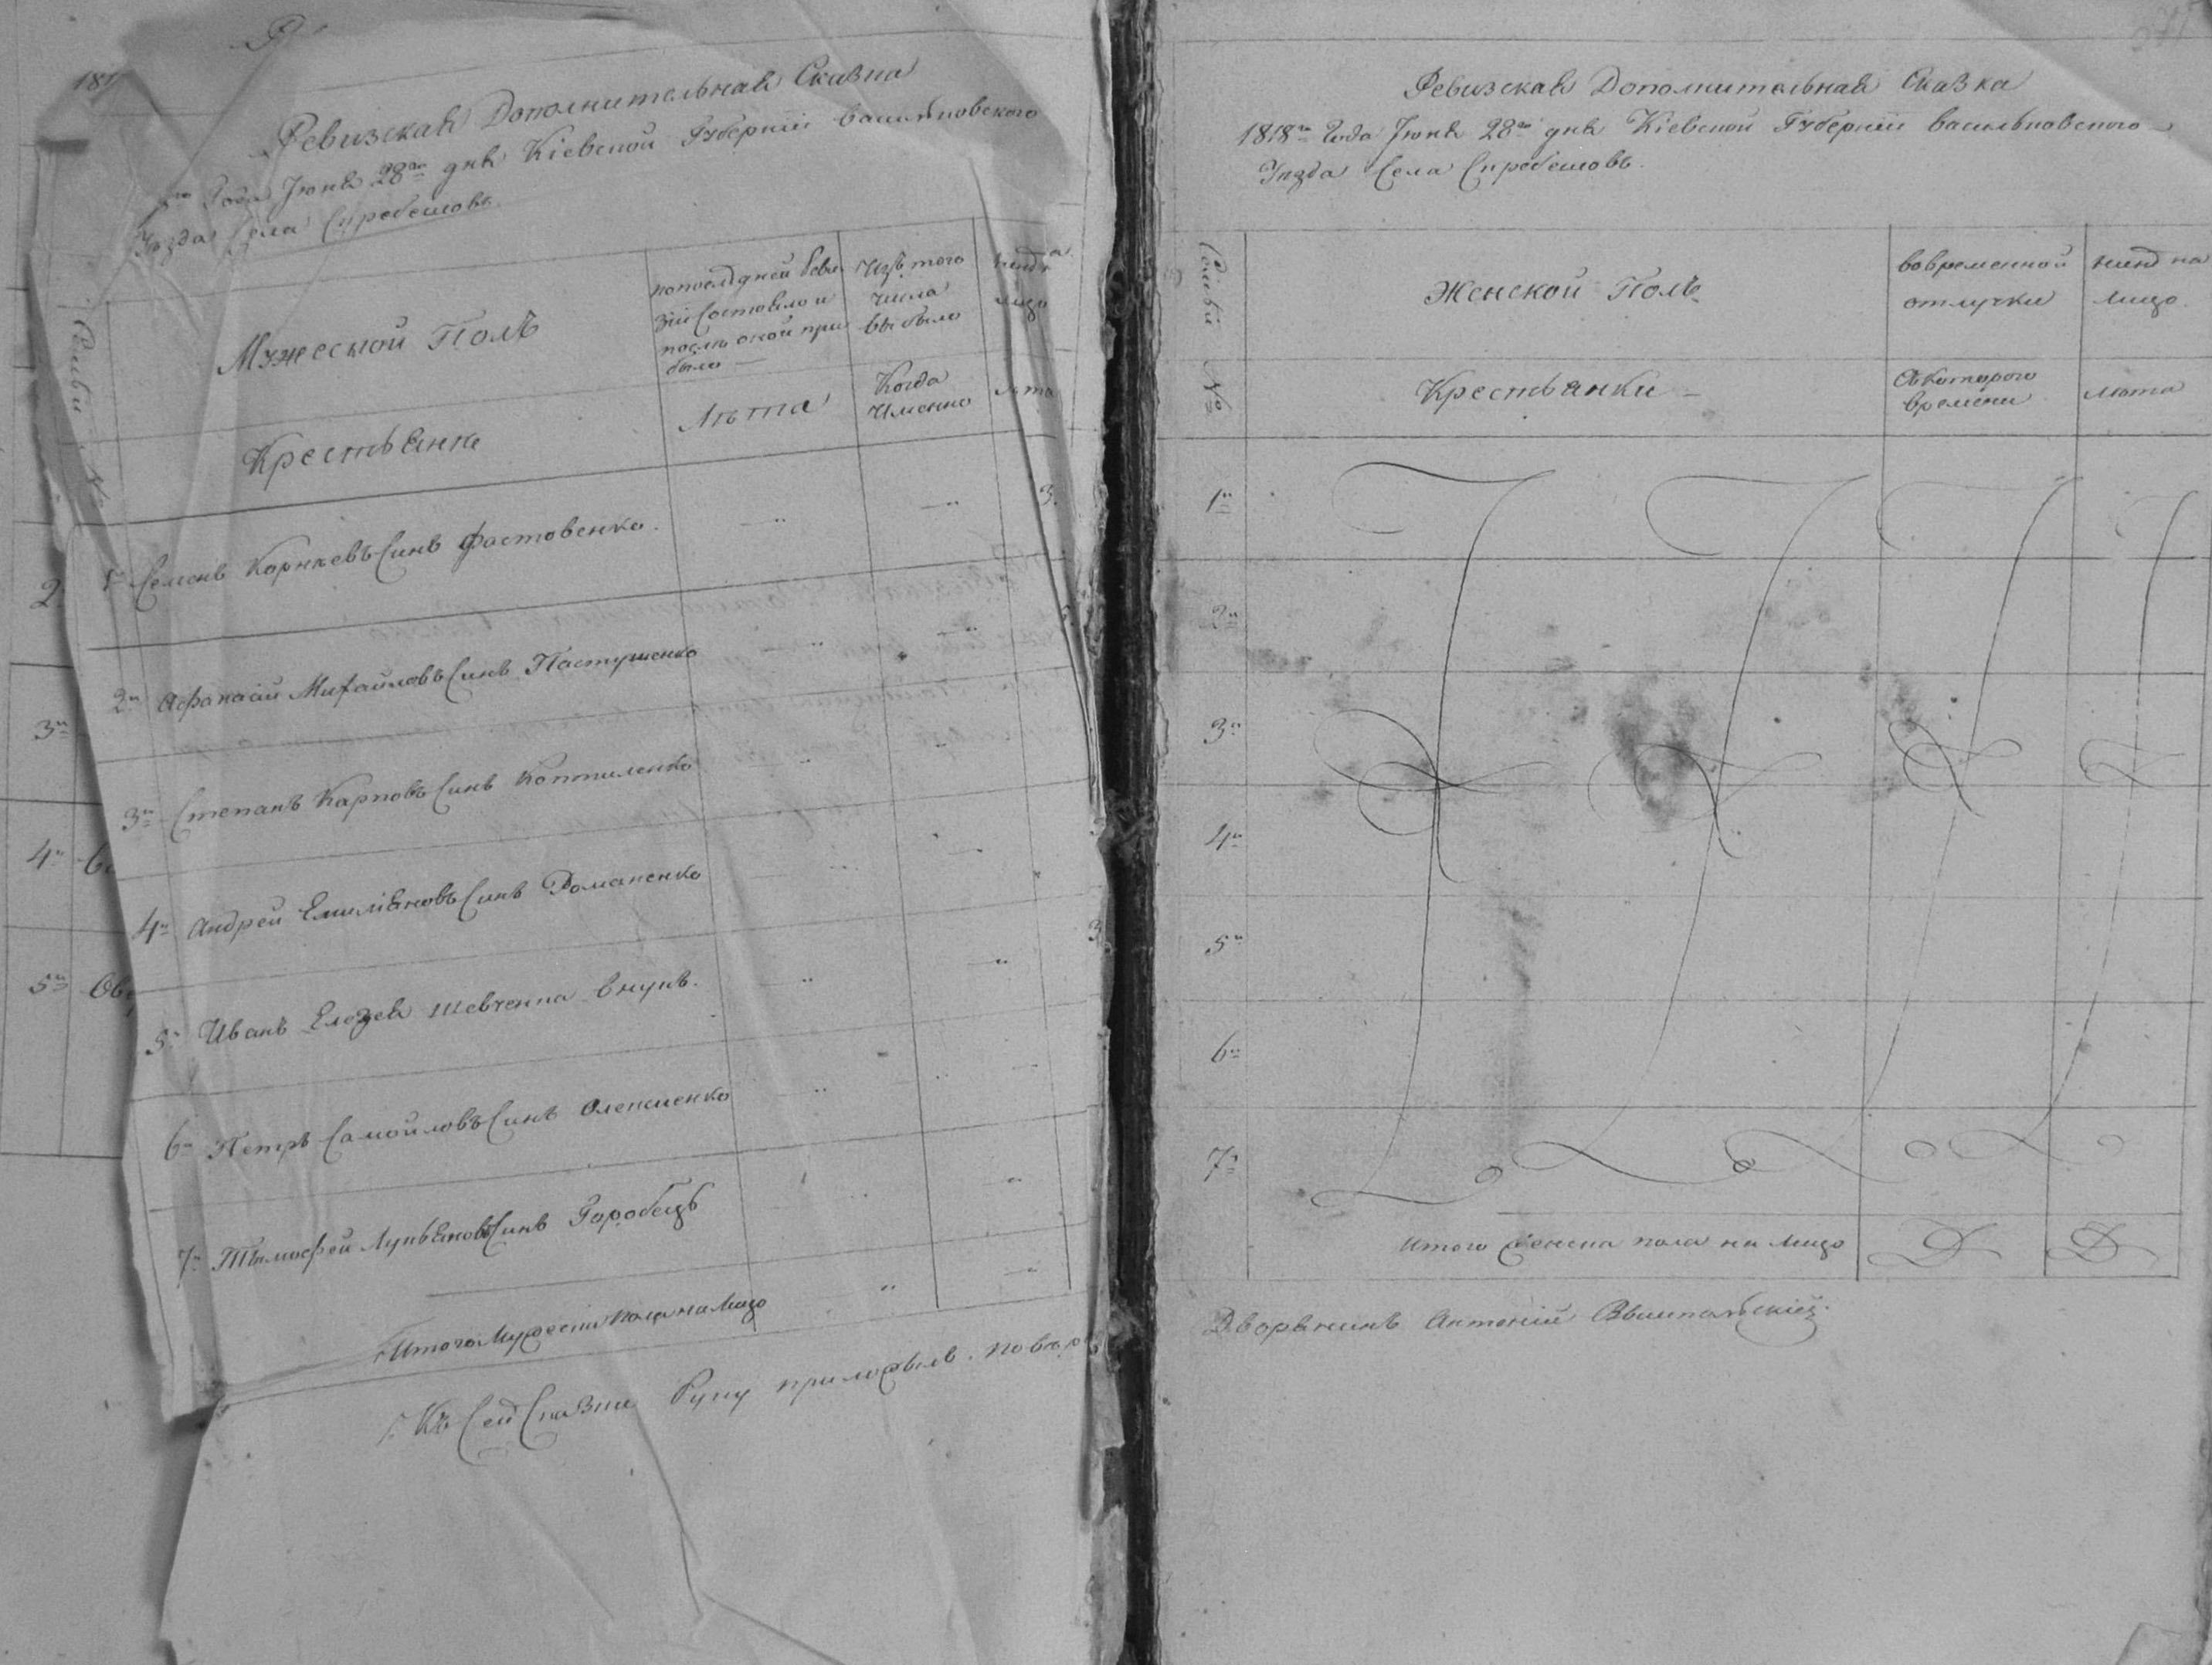 181
Ревизская Дополнительная Сказка
Года Іюня 28го дня Кіевской Губерніи васильковского
Уезда Села Скребешовъ
Семьи №
Мужеской Полъ
по последней Реви
зіи Состояло и
после оной при
было
Изъ того
числа
выбыло
лицо
Крестьяне
Лѣта
Когда
Именно
лѣта
1 Семенъ Корнѣевъ Синъ Фастовенко
3
2 Афанасій Михайловъ Синъ Пастушенко
3 Степанъ Карповъ Синъ Коптиленко
4 Андрей Емиліяновъ Синъ Романенко
3
5 Иванъ Елезея Шевченка внукъ
6 Петръ Самойловъ Синъ Олепиенко
7 Тымофей Лукьяновъ Синъ Горобецъ
Итого Мужеска пола на Лицо
Къ Сей Сказки Руку приложылъ повѣр
2
3
4
5
Ревизская Дополнительная Сказка
1818го Года Іюня 28го дня Кіевской Губерніи васильковского
Уезда Села Скребешовъ
Семьи №
Женской Полъ
во временной
отлучки
нинѣ на
Лицо
Крестьянки
Съ Которого
времени
лѣта
1
2
3
4
5
6
7
Итого Женска пола на Лицо
Дворянинъ Антоній